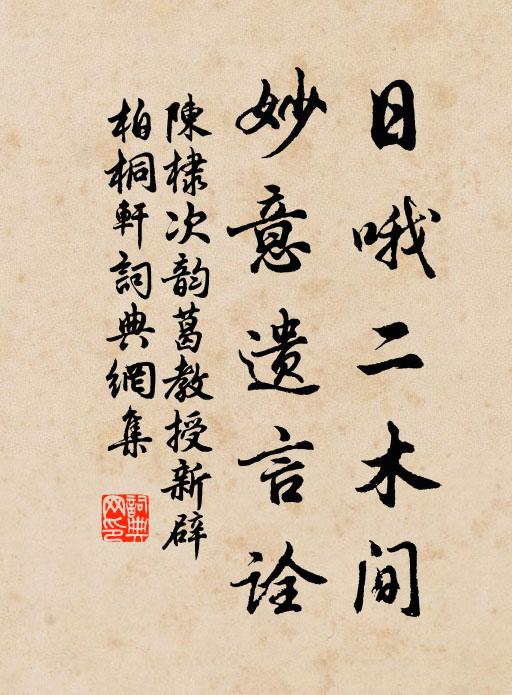 日哦二木间
妙意遗言诠
陳棣次韵葛教授新辟
柏桐軒詞典網集
詞典網印